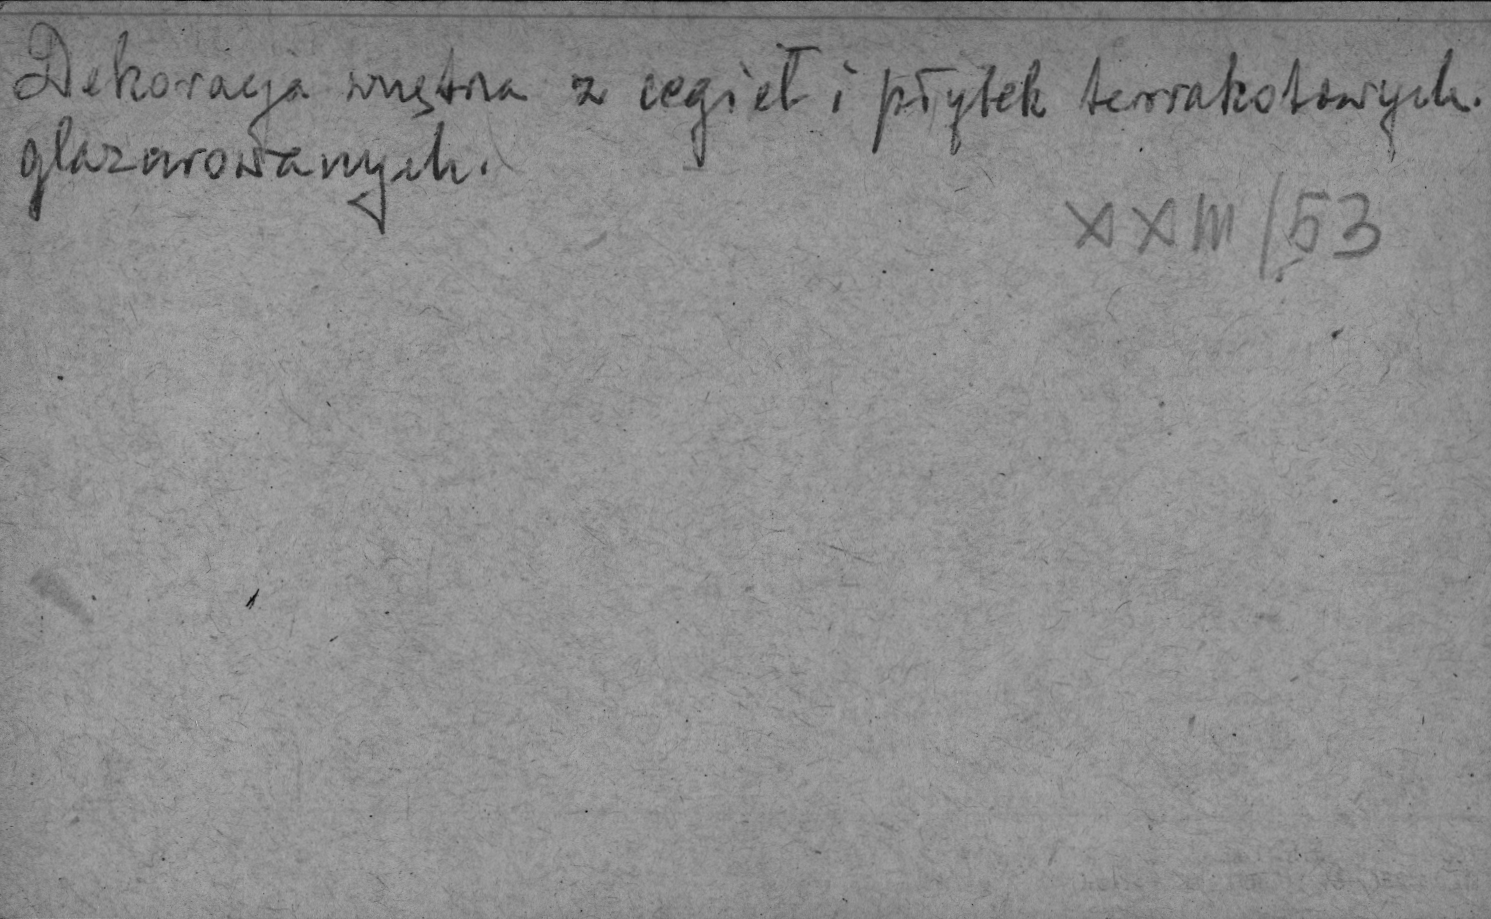 Dekoracja wnętrza z cegieł i płytek terrakotowych.
glazurowanych.
XXIII/53